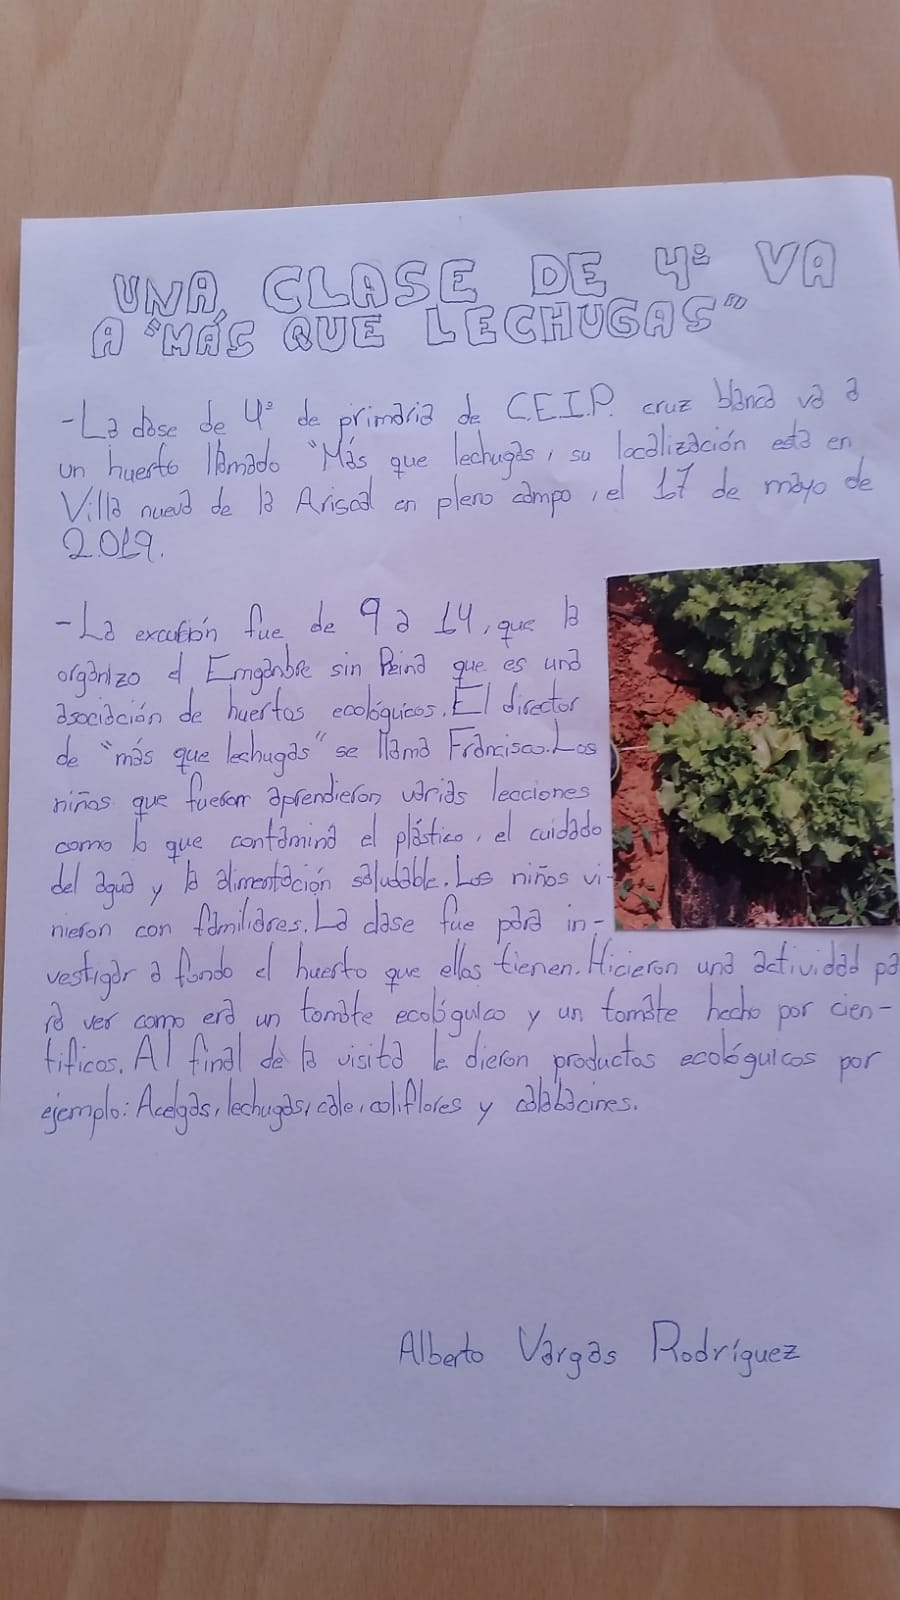 UNA CLASE DE 4º VA
A "MÁS QUE LECHUGAS"
-La clase de 4º de primaria de C.E.I.P. cruz blanca va a
un huerto llamado "Más que lechugas, su localización esta en
Villa nueva de la Ariscal en pleno campo, el 17 de mayo de
2.019.
-La excursión fue de 9 a 14, que la
organizo el Enganbre sin Reina que es una
asociación de huertos ecológuicos. El director
de "más que lechugas" se llama Francisco. Los
niños que fueron aprendieron varias lecciones
como lo que contamina el plástico, el cuidado
del agua y la alimentación saludable. Los niños vi-
nieron con familiares. La clase fue para in-
vestigar a fondo el huerto que ellos tienen. Hicieron una actividad pa
ra ver como era un tomate ecológuico y un tomate hecho por cien-
tificos. Al final de la visita le dieron productos ecológuicos por
ejemplo: Acelgas, lechugas, cole, coliflores y calabacines.
Alberto Vargas Rodríguez